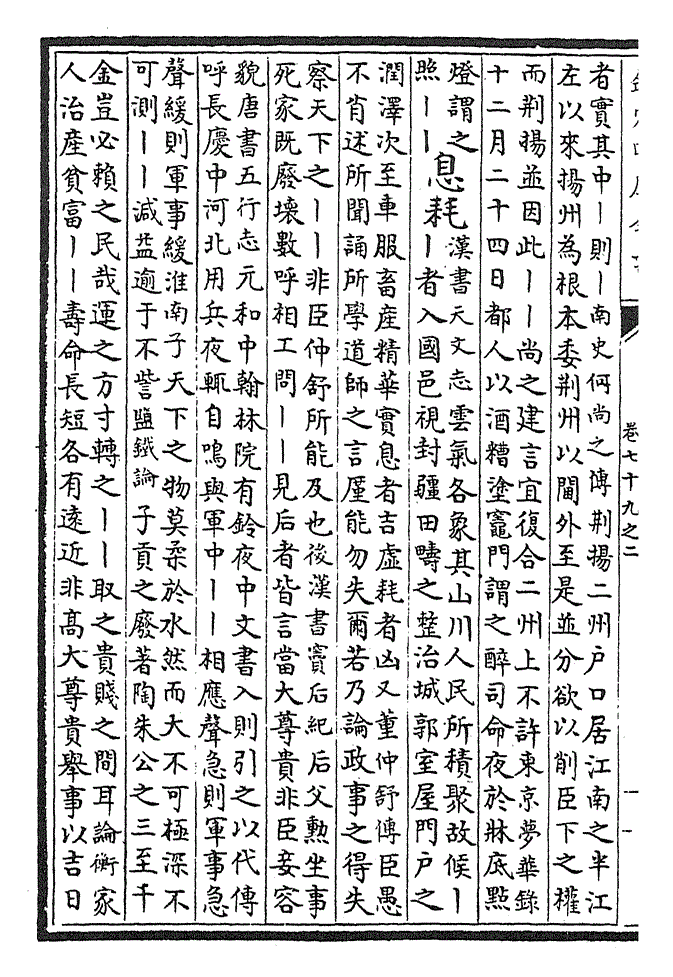 卷七十九之二
者實其中丨則丨南史何尚之傳荆揚二州户口居江南之半江
左以來揚州為根本委荆州以閫外至是並分欲以削臣下之權
而荆揚並因此丨丨尚之建言宜復合二州上不許東京夢華錄
十二月二十四日都人以酒糟塗竈門謂之醉司命夜於牀底㸃
燈謂之
照丨丨
息耗
漢書天文志雲氣各象其山川人民所積聚故候丨
丨者入國邑視封疆田疇之整治城郭室屋門戶之
潤澤次至車服畜産精華實息者吉虛耗者凶又董仲舒傳臣愚
不肖述所聞誦所學道師之言廑能勿失爾若乃論政事之得失
察天下之丨丨非臣仲舒所能及也後漢書竇后紀后父勲坐事
死家既廢壞數呼相工問丨丨見后者皆言當大尊貴非臣妾容
貌唐書五行志元和中翰林院有鈴夜中文書入則引之以代傳
呼長慶中河北用兵夜輒自鳴與軍中丨丨相應聲急則軍事急
聲緩則軍事緩淮南子天下之物莫柔於水然而大不可極深不
可測丨丨減益逾于不訾鹽鐵論子貢之廢著陶朱公之三至千
金豈必賴之民哉運之方寸轉之丨丨取之貴賤之間耳論衡家
人治産貧富丨丨壽命長短各有遠近非髙大尊貴舉事以吉日